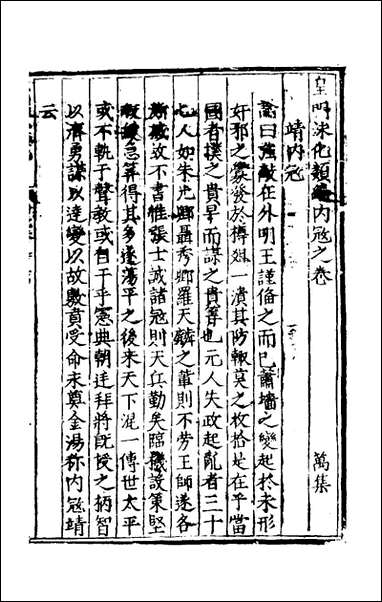 皇明泳化類編內冦之卷　萬集
靖內冦
論曰強敵在外明王謹備之而已蕭墻之變起於未形
奸邪之蘖發於樽俎一潰其防輙莫之救拾是在乎當
國者撲之貴早而謀之貴篤也元人失政起亂者三十
七人如朱光卿聶秀卿羅天麟之輩則不勞王師遂各
澌滅故不書惟張士誠諸冦則天兵勤矣臨機設策堅
緩急算得其多遂蕩平之後來天下混一傳世太平
或不軌于聲教或自干乎憲典朝廷拜將旣授之柄智
以濟勇謀以達變以故敷賁受命未奠金湯称內冦靖
云